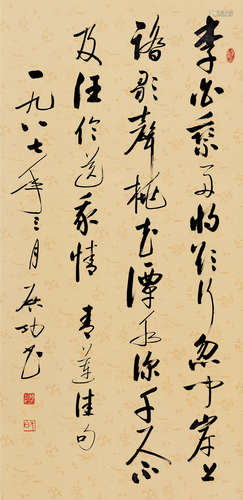 李白乘舟將欲行忽聞岸上
踏歌聲桃花潭水深千尺不
及汪倫送我情 青蓮佳句
一九八七年三月 启功書